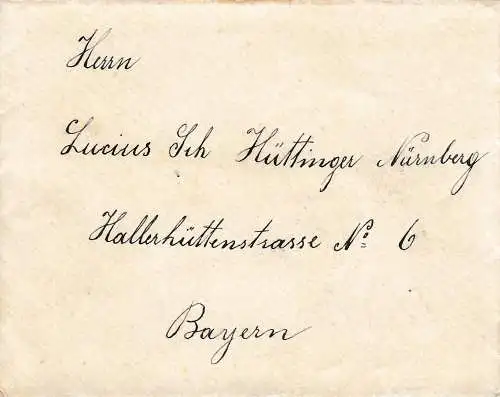 Herrn
Lucius Sch Hüttinger Nürnberg
Hallerhüttenstrasse No 6
Bayern